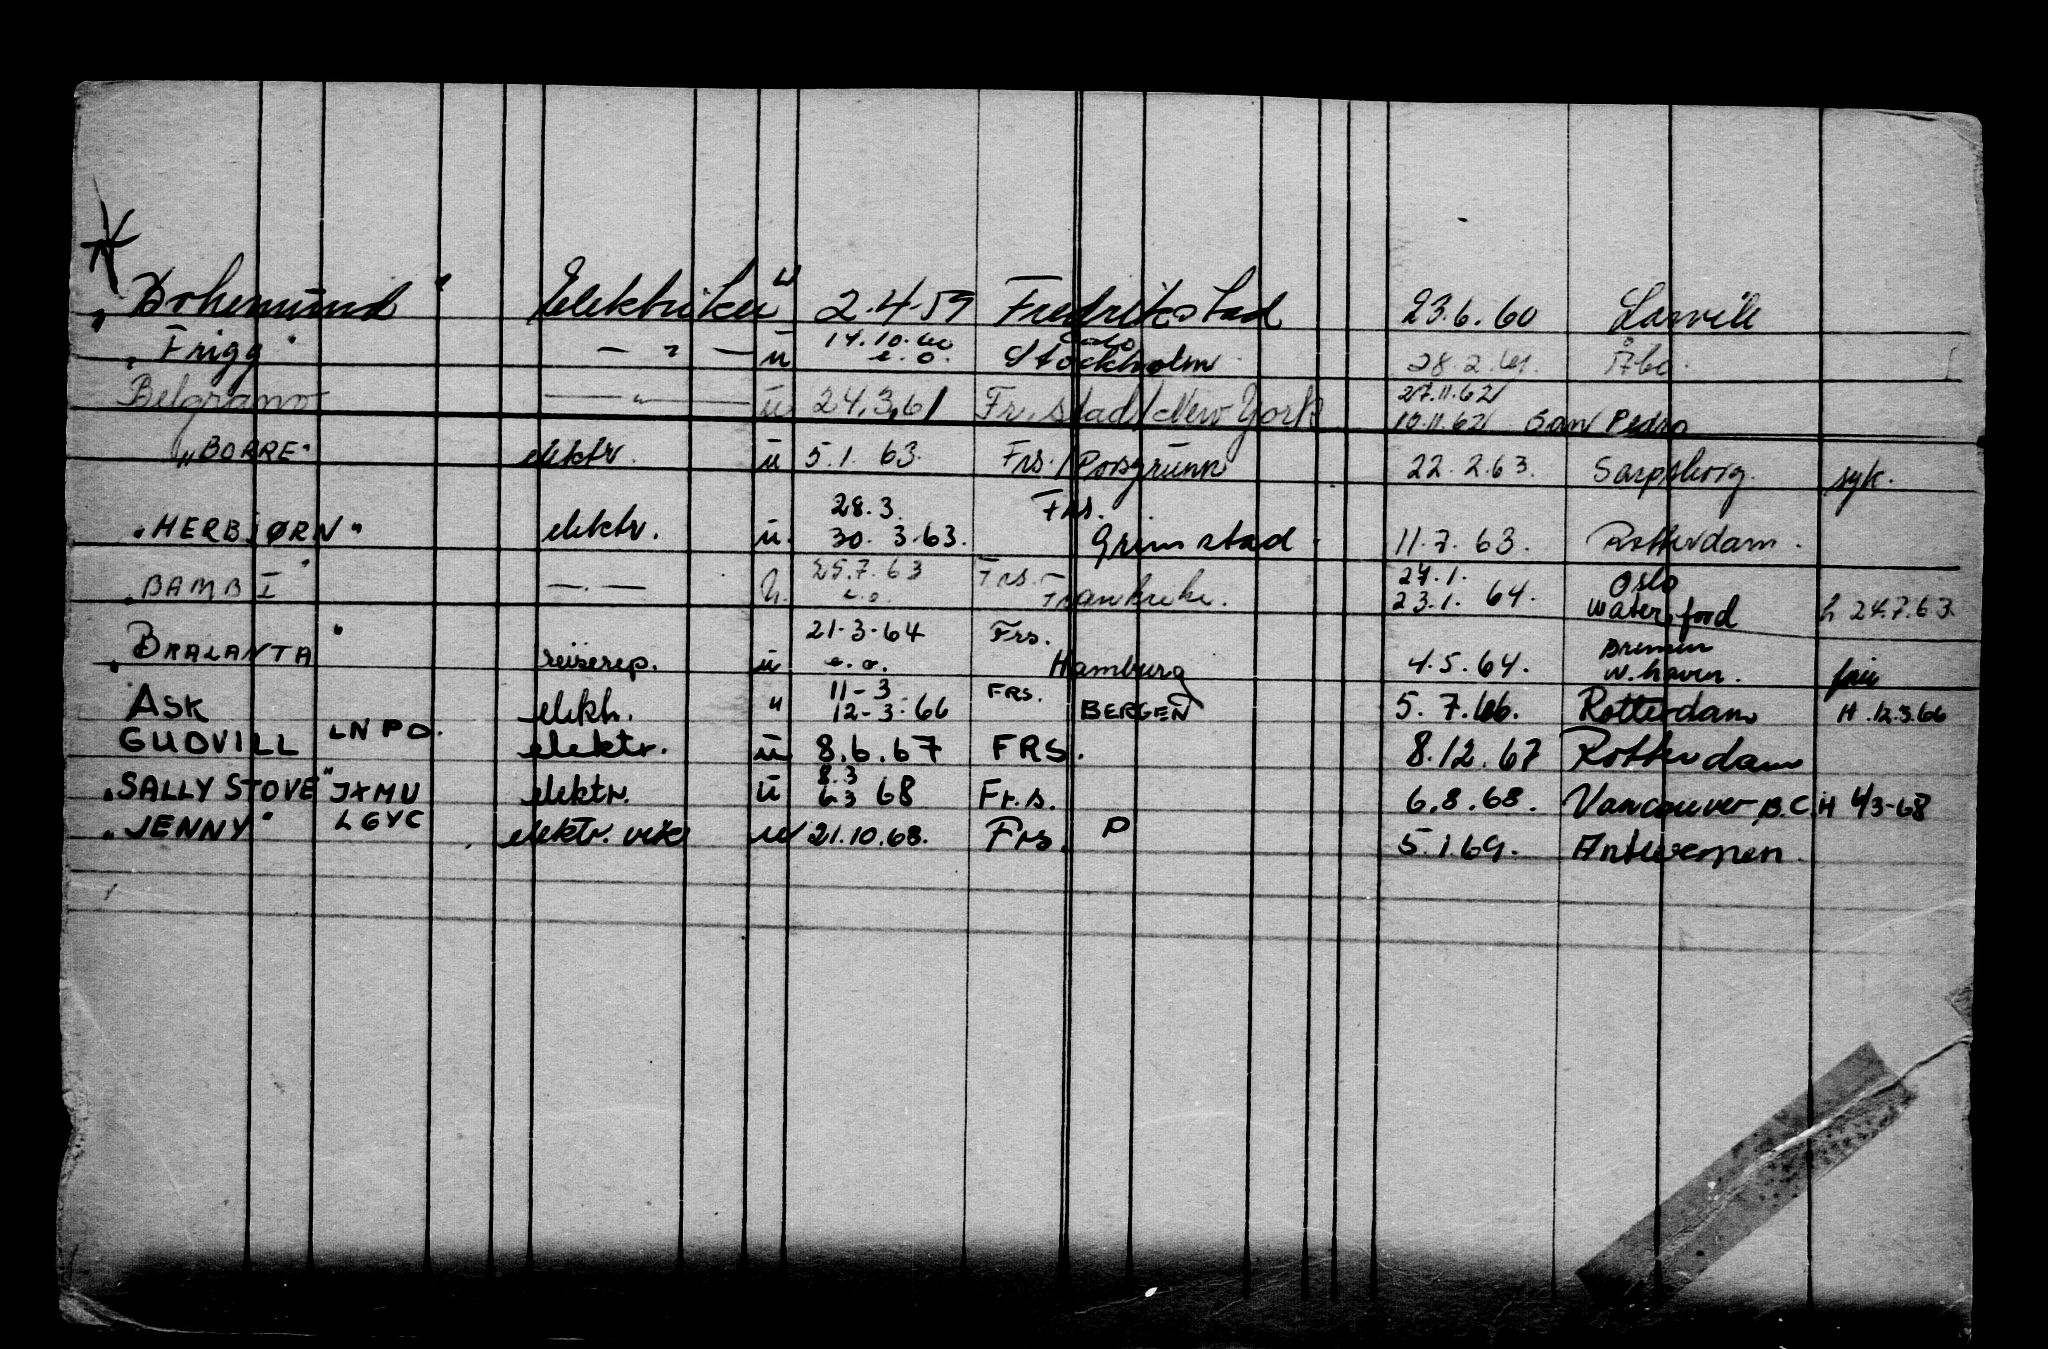 "Bohemund" Elektriker u 2.4.59 Fredrikstad 23.6.60 Larvik
"Frigg" — " — u 14.10.60 e.o. Oslo Stockholm 28.2.61. Åbo.
Belgrano — " — u 24.3.61 Fr.stad/New York 27.11.62 10.11.62 San Pedro
"BORRE" elektr. u 5.1.63. Frs./Porsgrunn 22.2.63. Sarpsborg. syk.
"HERBJØRN" elektr. u. 28.3. 30.3.63. Frs. Grimstad. 11.7.63. Rotterdam.
"BAMBI" —.— u. 25.7.63 e.o. Frs. Frankrike. 27.1. 23.1.64. Oslo Waterford h 24.7.63.
"BRALANTA" reiserep. u 21.3.64 e.o. Frs. Hamburg 4.5.64. Bremen W.haven.
ASK elektr. " 11-3 12-3.66 FRS. BERGEN 5.7.66. Rotterdam H.12.3.66
GUDVILL LNPD. elektr. u 8.6.67 FRS. 8.12.67 Rotterdam
"SALLY STOVE" JXMU elektr. u 8.3 6.3 68 Fr.s. 6.8.68. Vancouver B.C. H 4/3-68
"JENNY" LGYC elektr. vik u 21.10.68. Frs. P 5.1.69. Antwerpen.